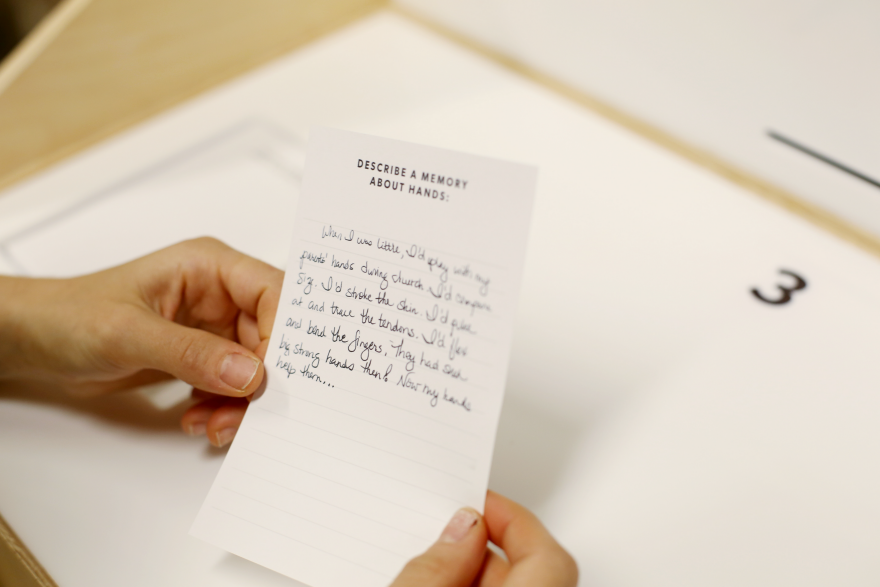 DESCRIBE A MEMORY
ABOUT HANDS:
When I was little, I'd play with my
parents' hands during church. I'd compare
size. I'd stroke the skin. I'd pulse
at and trace the tendons. I'd flex
and bend the fingers. They had such
big strong hands then! Now my hands
help them...
3